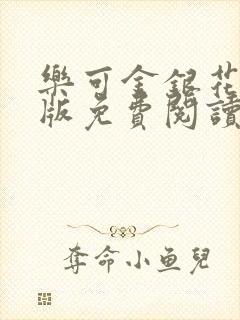 樂可金銀花
版免費閱讀
奪命小鱼兒